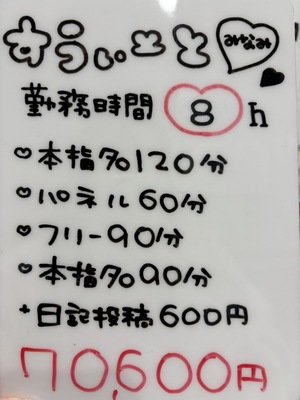 みなみ
勤務時間 8 h
♡本指名120分
♡パネル60分
♡フリー90分
♡本指名90分
+日記投稿600円
70,600円